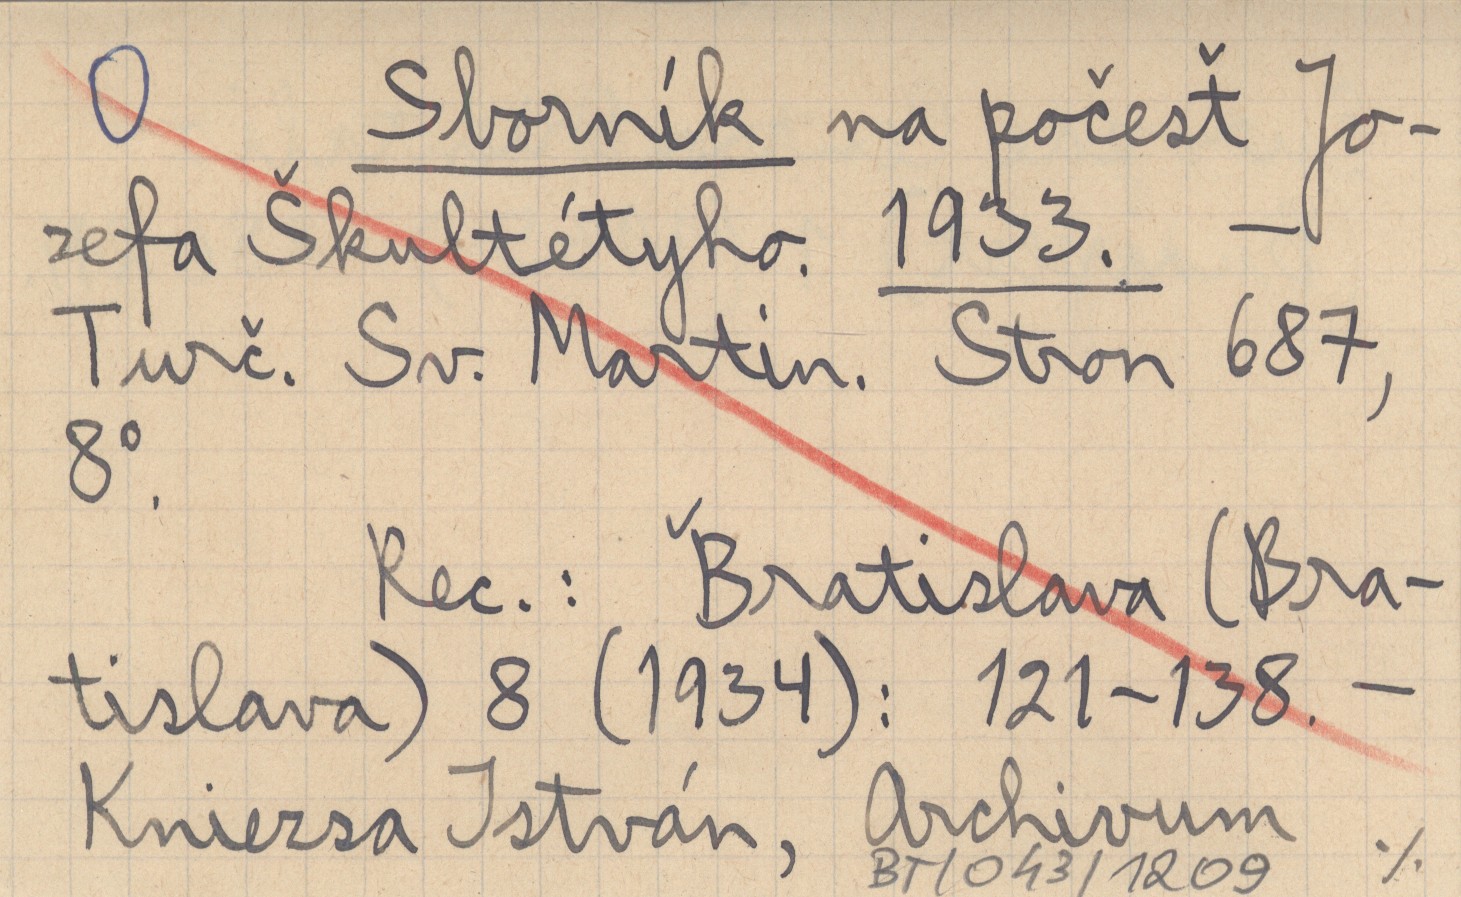 O Sborník na počesť Jo-
zefa Škultétyho. 1933. —
Turč. Sv. Martin. Stron 687,
8°.
Rec.: Bratislava (Bra-
tislava) 8 (1934): 121-138. —
Kniezsa István, Archivum ./.
BT/043/1209